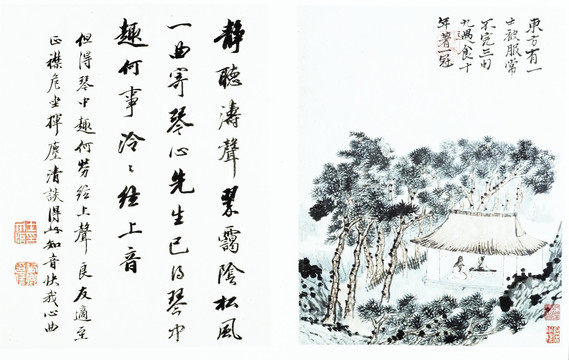 東方有一
士被服常
不完三旬
九遇食十
年著一冠
靜聽濤聲翠靄陰松風
一曲寄琴心先生已得琴中
趣何事泠〻絃上音
但得琴中趣何勞絃上聲良友適至
正襟危坐揮麈清談得知音快我心曲